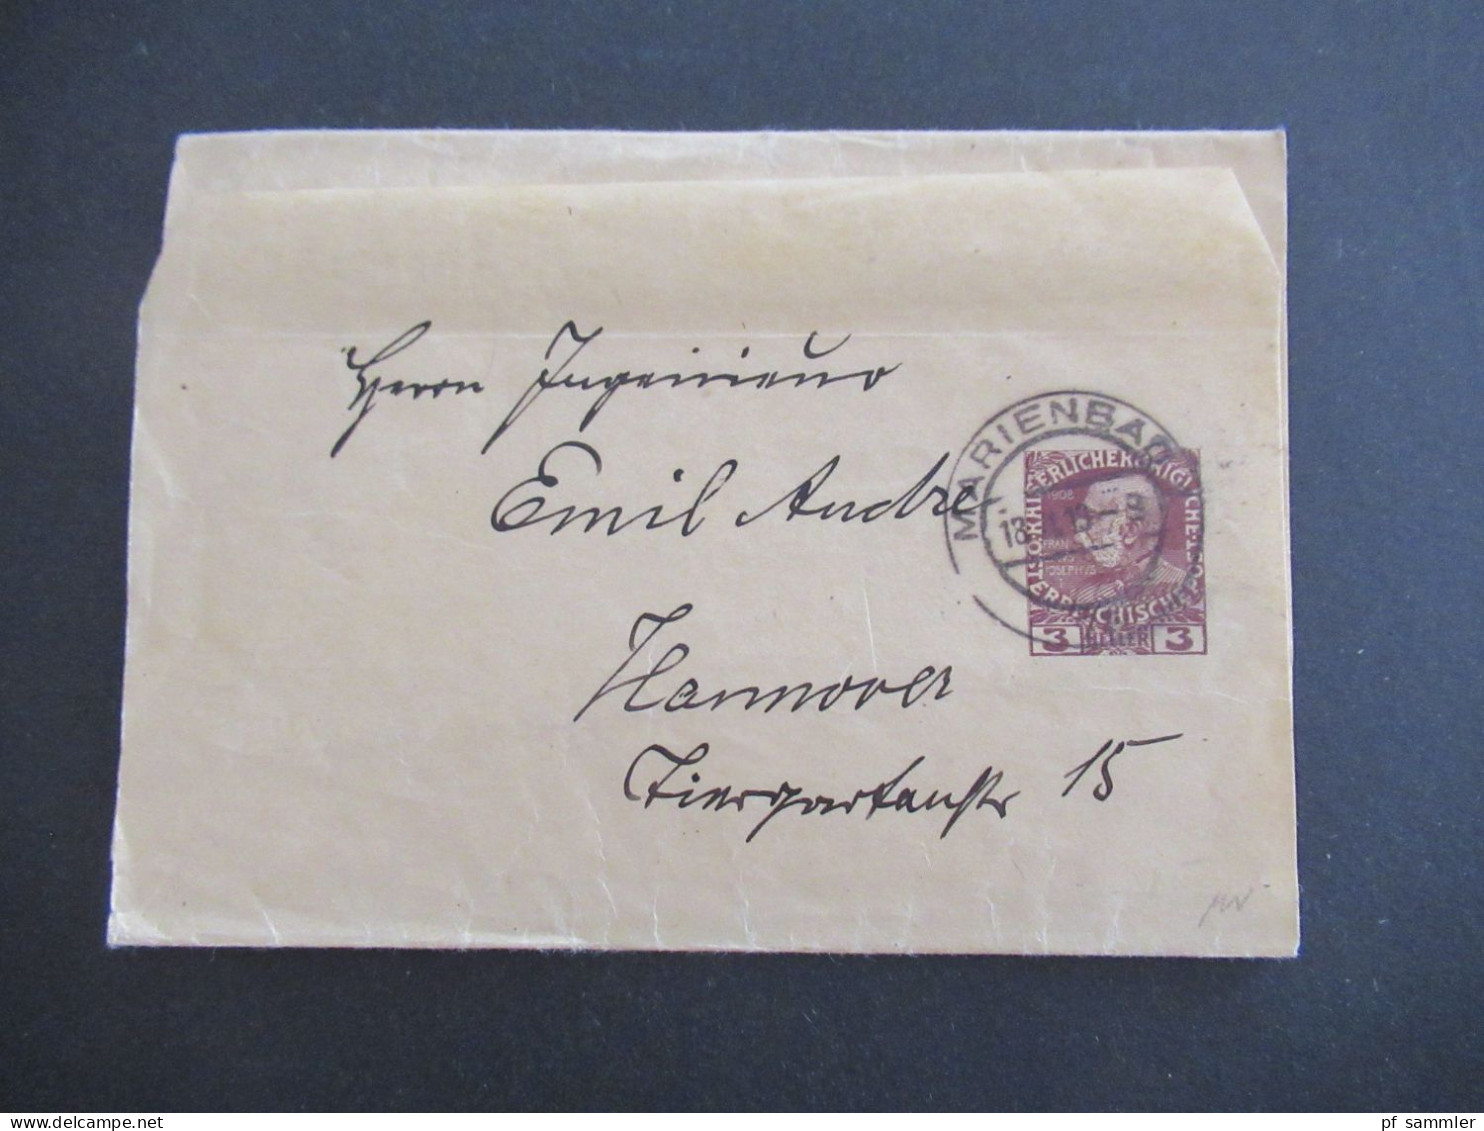 Herrn Ingenieur
Emil Andre
Hannover
Tiergartenstr 15
MARIENBAD
18
KAISERLICHE KÖNIGLICHE
ÖSTERREICHISCHE POST
1908
JOSEPHVS
3 HELLER 3
pf sammler